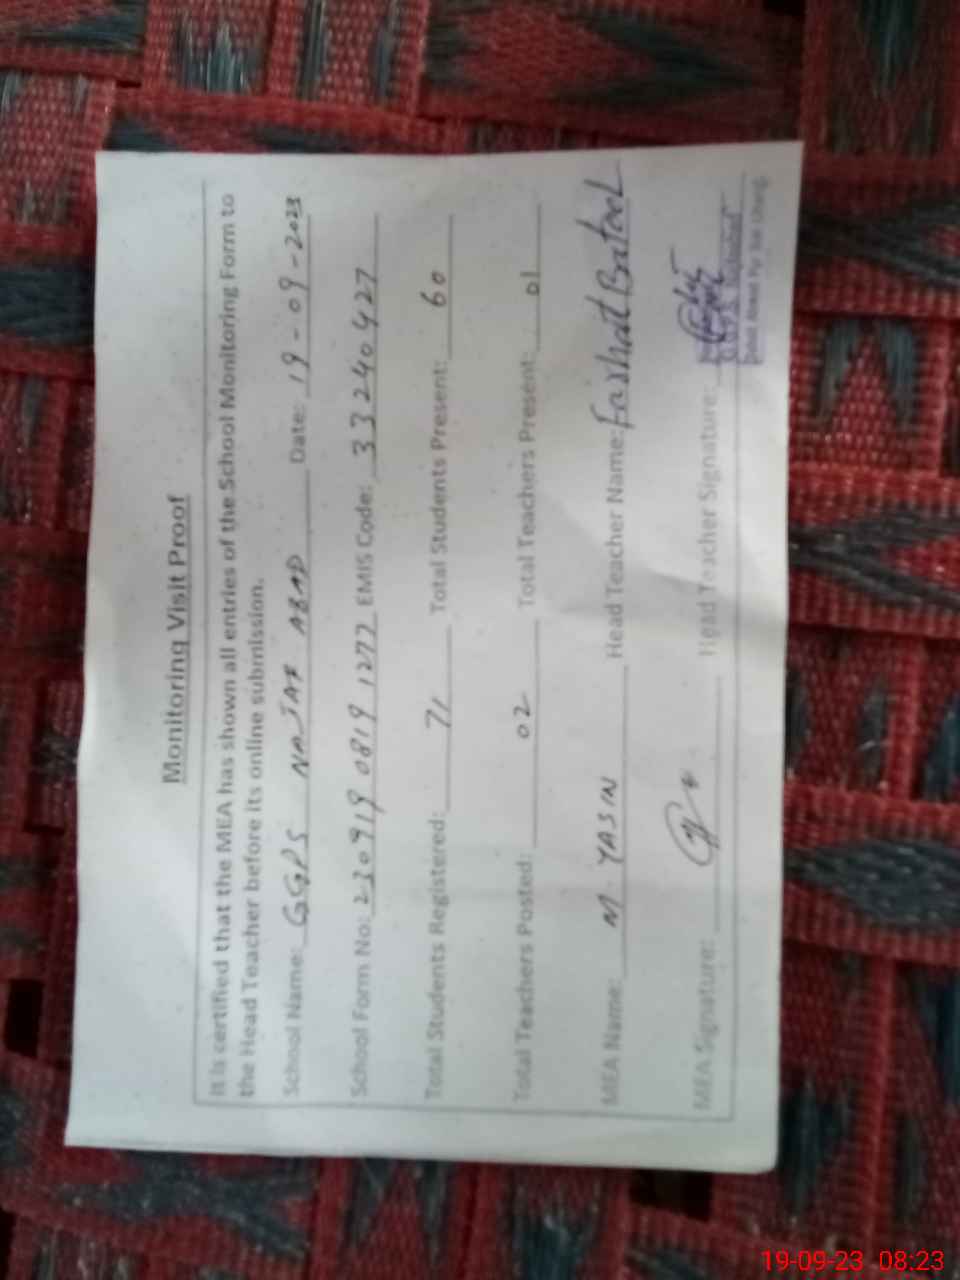 Monitoring Visit Proof
It is certified that the MEA has shown all entries of the School Monitoring Form to
the Head Teacher before its online submission.
School Name: GGPS NAJAF ABAD Date: 19-09-2023
School Form No: 230919 0819 1277 EMIS Code: 33240427
Total Students Registered: 71 Total Students Present: 60
Total Teachers Posted: 02 Total Teachers Present: 01
MEA Name: M. YASIN Head Teacher Name: Farhat Batool
MEA Signature: Head Teacher Signature:
19-09-23 08:23